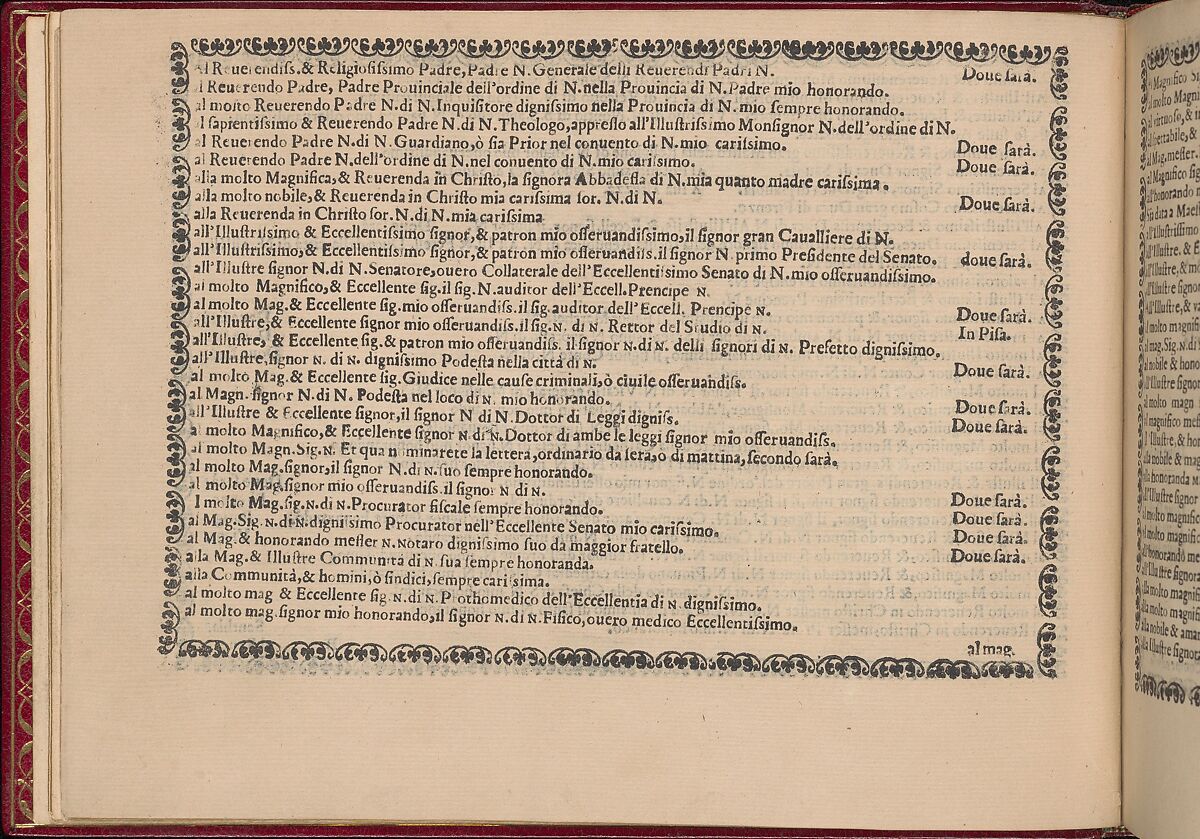 al Reuerendiss. & Religiosissimo Padre, Padre N. Generale delli Reuerendi Padri N. Doue sara.
al Reuerendo Padre, Padre Prouinciale dell'ordine di N. nella Prouincia di N. Padre mio honorando.
al molto Reuerendo Padre N. di N. Inquisitore dignissimo nella Prouincia di N. mio sempre honorando.
al sapientissimo & Reuerendo Padre N. di N. Theologo, appresso all'Illustrissimo Monsignor N. dell'ordine di N.
al Reuerendo Padre N. di N. Guardiano, ò sia Prior nel conuento di N. mio carissimo. Doue sarà.
al Reuerendo Padre N. dell'ordine di N. nel conuento di N. mio carissimo. Doue sarà.
alla molto Magnifica, & Reuerenda in Christo, la signora Abbadessa di N. mia quanto madre carissima.
alla molto nobile, & Reuerenda in Christo mia carissima sor. N. di N. Doue sarà.
alla Reuerenda in Christo sor. N. di N. mia carissima
all'Illustrissimo & Eccellentissimo signor, & patron mio osseruandissimo, il signor gran Caualliere di N.
all'Illustrissimo, & Eccellentissimo signor, & patron mio osseruandiss. il signor N. primo Presidente del Senato. doue sarà.
all'Illustre signor N. di N. Senatore, ouero Collaterale dell'Eccellentissimo Senato di N. mio osseruandissimo.
al molto Magnifico, & Eccellente sig. il sig. N. auditor dell'Eccell. Prencipe N.
al molto Mag. & Eccellente sig. mio osseruandiss. il sig. auditor dell'Eccell. Prencipe N. Doue sarà.
all'Illustre, & Eccellente signor mio osseruandiss. il sig. N. di N. Rettor del Studio di N. In Pisa.
all'Illustre, & Eccellente sig. & patron mio osseruandiss. il signor N. di N. delli signori di N. Prefetto dignissimo.
all'Illustre. signor N. di N. dignissimo Podesta nella città di N. Doue sarà.
al molto Mag. & Eccellente sig. Giudice nelle cause criminali, ò ciuile osseruandiss.
al Magn. signor N. di N. Podesta nel loco di N. mio honorando. Doue sarà.
all'Illustre & Eccellente signor, il signor N di N. Dottor di Leggi digniss. Doue sarà.
al molto Magnifico, & Eccellente signor N di N. Dottor di ambe le leggi signor mio osseruandiss.
al molto Magn. Sig. N. Et qua nominarete la lettera, ordinario da sera, o di mattina, secondo sarà.
al molto Mag. signor, il signor N. di N. suo sempre honorando.
al molto Mag. signor mio osseruandiss. il signor N di N. Doue sarà.
l molto Mag. sig. N. di N. Procurator fiscale sempre honorando. Doue sarà.
al Mag. Sig. N. di N. dignissimo Procurator nell'Eccellente Senato mio carissimo. Doue sarà.
al Mag. & honorando messer N. Notaro dignissimo suo da maggior fratello. Doue sarà.
alla Mag. & Illustre Communità di N. sua sempre honoranda.
alla Communità, & homini, ò sindici, sempre carissima.
al molto mag & Eccellente sig. N. di N. Prothomedico dell'Eccellentia di N. dignissimo.
al molto mag. signor mio honorando, il signor N. di N. Fisico, ouero medico Eccellentissimo.
al mag.